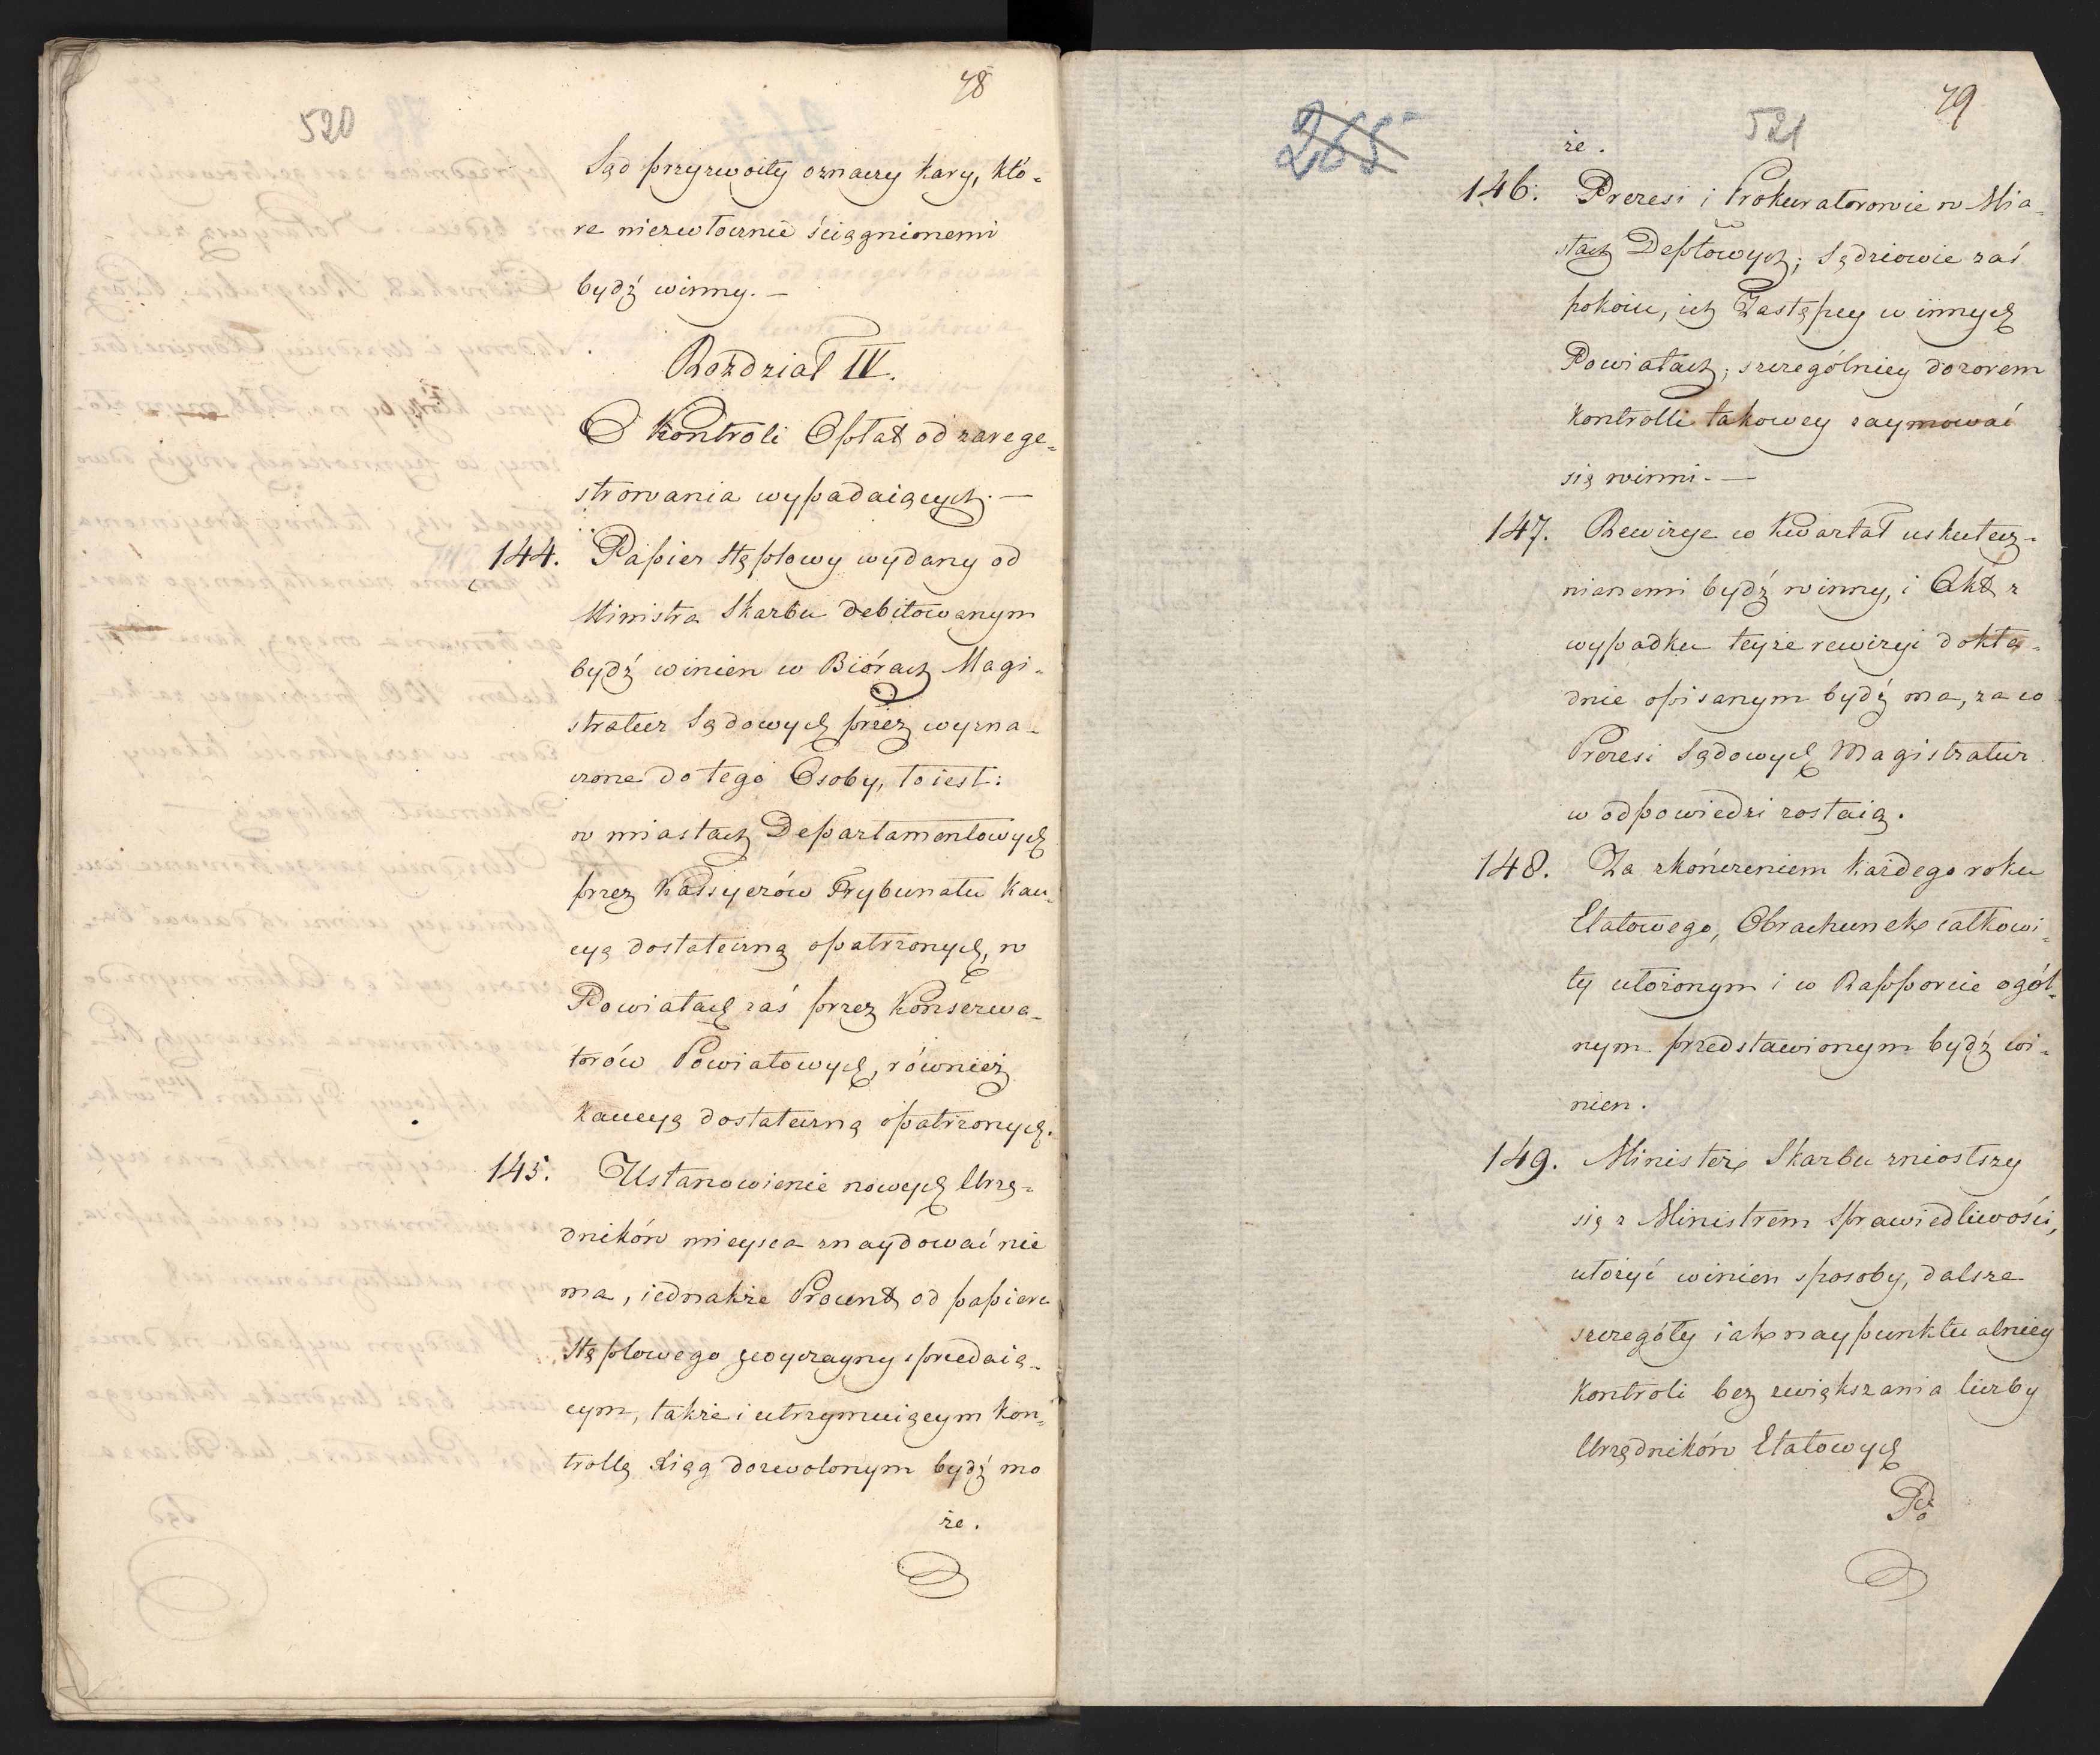 78
520
Sąd przyzwoity oznaczy kary, któ-
re niezwłocznie ściągnionemi
bydź winny. —
Rozdział IV.
O Kontroli Opłat od zarege-
strowania wypadaiących. —
144. Papier stęplowy wydany od
Ministra Skarbu debitowanym
bydź winien w Biórach Magi-
stratur Sądowych przez wyzna-
czone do tego Osoby, to iest:
w miastach Departamentowych
przez Kassyerów Trybunału kau-
cyą dostateczną opatrzonych, w
Powiatach zaś przez Konserwa-
torów Powiatowych, również
kaucyą dostateczną opatrzonych.
145. Ustanowienie nowych Urzę-
dników mieysca znaydować nie
ma, iednakże Procent od papieru
stęplowego zwyczayny sprzedaią-
cym, także i utrzymuiącym Kon-
trollę Xiąg dozwolonym bydź mo
że.
79
521
265
że.
146. Prezesi i Prokuratorowie w Mia-
stach Depłowych; Sędziowie zaś
pokoiu, ich Zastępcy w innych
Powiatach, szczególniey dozorem
Kontrolli takowey zaymować
się winni. —
147. Rewizye co Kwartał uskutecz-
nianemi bydź winny, i Akt z
wypadku teyże rewizyi dokła-
dnie opisanym bydź ma, za co
Prezesi Sądowych Magistratur
w odpowiedzi zostaią.
148. Za skończeniem każdego roku
Etatowego, Obrachunek całkowi-
ty ułożonym i w Rapporcie ogól-
nym przedstawionym bydź wi-
nien.
149. Minister Skarbu zniosłszy
się z Ministrem Sprawiedliwości,
ułożyć winien sposoby, dalsze
szczegóły iak naypunktualniey
Kontroli bez zwiększania liczby
Urzędników Etatowych